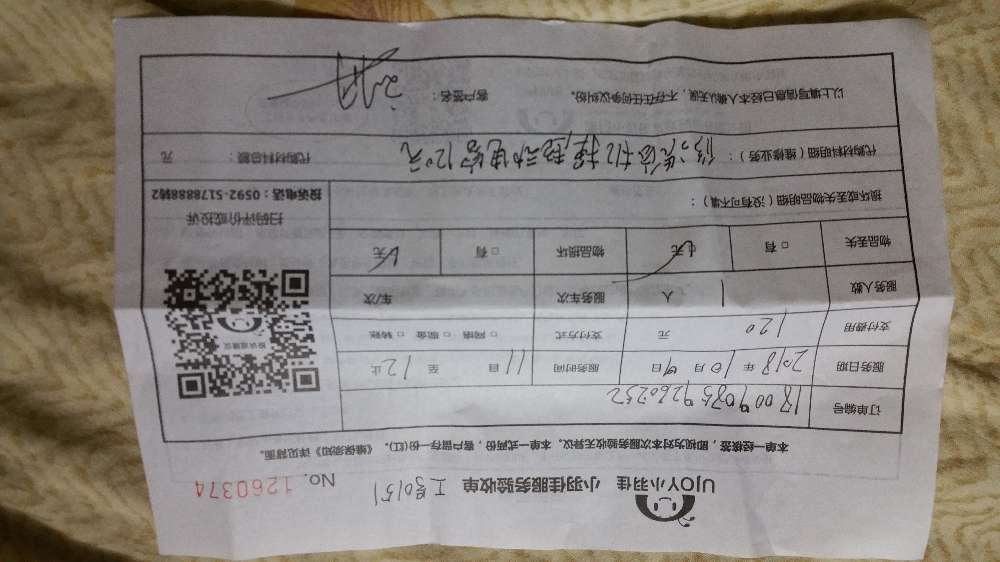 UJOY小羽佳 小羽佳服务验收单 工号0151 No. 1260374
本单一经核签，即视为对本次服务验收无异议。本单一式两份，客户留存一份(红)。《维保须知》详见背面。
订单编号
服务日期 2018 年 10 月 9 日 服务时间 11 自 至 12 止
支付费用 120 元 支付方式 □ 网络 □ 现金 □ 转账
服务人数 1 人 服务车次 车/次
物品丢失 □ 有 无 物品损坏 □ 有 无
损坏或丢失物品明细（没有可不填）：
投诉或建议
扫码评价或投诉
投诉电话：0592-5178888转2
代购材料明细（维修业务）： 修洗衣机, 换起动电容120元 代购材料总额： 元
以上填写信息已经本人确认无误，不存在任何争议纠纷。 客户签名：